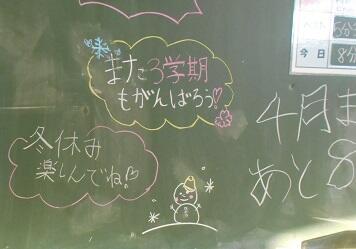 また3学期
もがんばろう!
冬休み
楽しんでね!
4月ま
あと8
今日